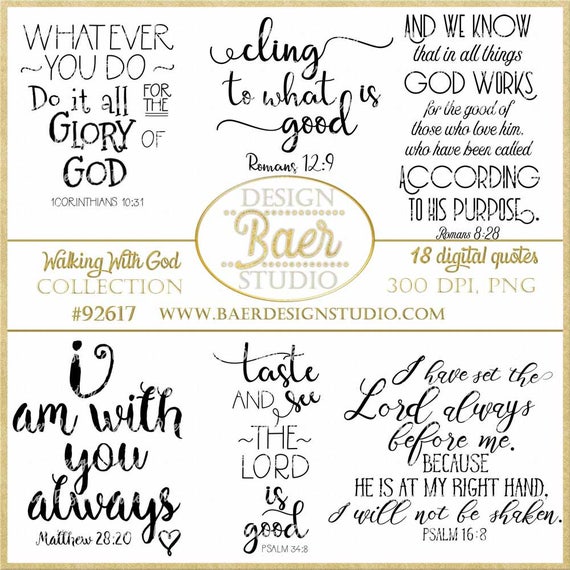 WHATEVER
~YOU DO~
Do it all FOR THE
GLORY OF
GOD
1CORINTHIANS 10:31
cling
to what is
good
Romans 12:9
AND WE KNOW
that in all things
GOD WORKS
for the good of
those who love him,
who have been called
ACCORDING
TO HIS PURPOSE.
Romans 8:28
DESIGN
Baer
STUDIO
Walking With God
COLLECTION
18 digital quotes
300 DPI, PNG
#92617 WWW.BAERDESIGNSTUDIO.COM
i
am with
you
always
Matthew 28:20
taste
AND see
~THE~
LORD
is
good
PSALM 34:8
I have set the
Lord always
before me.
BECAUSE
HE IS AT MY RIGHT HAND,
I will not be shaken.
PSALM 16:8